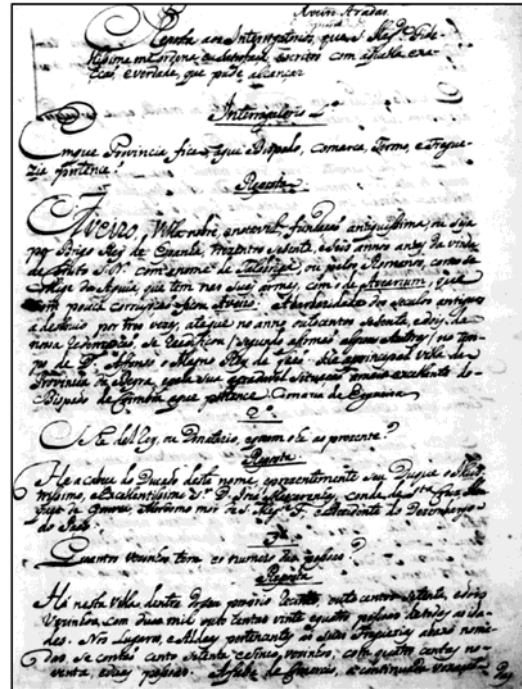 Aveiro Aradas
Reposta aos Interrogatorios, que S. Mag.e Fide-
lissima me ordena
e verdade, que pude alcançar
Interrogatorio 1.o
Em que Provincia fica, a que Bispado, Comarca, Termo, e Fregue-
zia pertence?
Reposta
Aveiro, Villa nobre, e notavel, fundação antiquissima, ou seja
por Brigo Rey de Espanha, annos antes da vinda
de Christo S. N. com o nome de Talabriga, ou pelos Romanos,
da Aguia, que tem nas suas armas, com o de Averium, que
com pouca corrupção ficou Aveiro. A barbaridade dos seculos antigos
a destruio por tres vezes, até que no anno outocentos setenta, e dois da
nossa Redempção, se reedificou (segundo afirmão alguns Authores) no tem-
po de D. Affonso o Magno Rey de Leão. He a principal villa da
Provincia da Beyra, e pela sua agradavel situação a mais excellente do
Bispado de Coimbra a que pertence Comarca de Esgueira
2.o
Se he del Rey, ou Donatario, e quem o he ao prezente?
Reposta
He a cabeça do Ducado deste nome, e prezentemente seu Duque o Illus-
trissimo, e Excellentissimo S.r D. José Mascarenhas, Conde de S.ta Cruz,
Mordomo mor de S. Mag.e F. e Prezidente do Dezembargo
do Paço.
3.o
Quantos vezinhos tem e o numero das pessoas?
Reposta
Ha nesta Villa, dentro do seu proprio outo centos setenta, e dois
Vezinhos, com duas mil outo centas vinte e quatro pessoas de todas as ida-
des. Nos Lugares, e Aldeas pertencentes as suas Freguezias abaxo nome-
das, se contão cento setenta e sinco vezinhos, com quatro centas no-
venta, e duas pessoas.